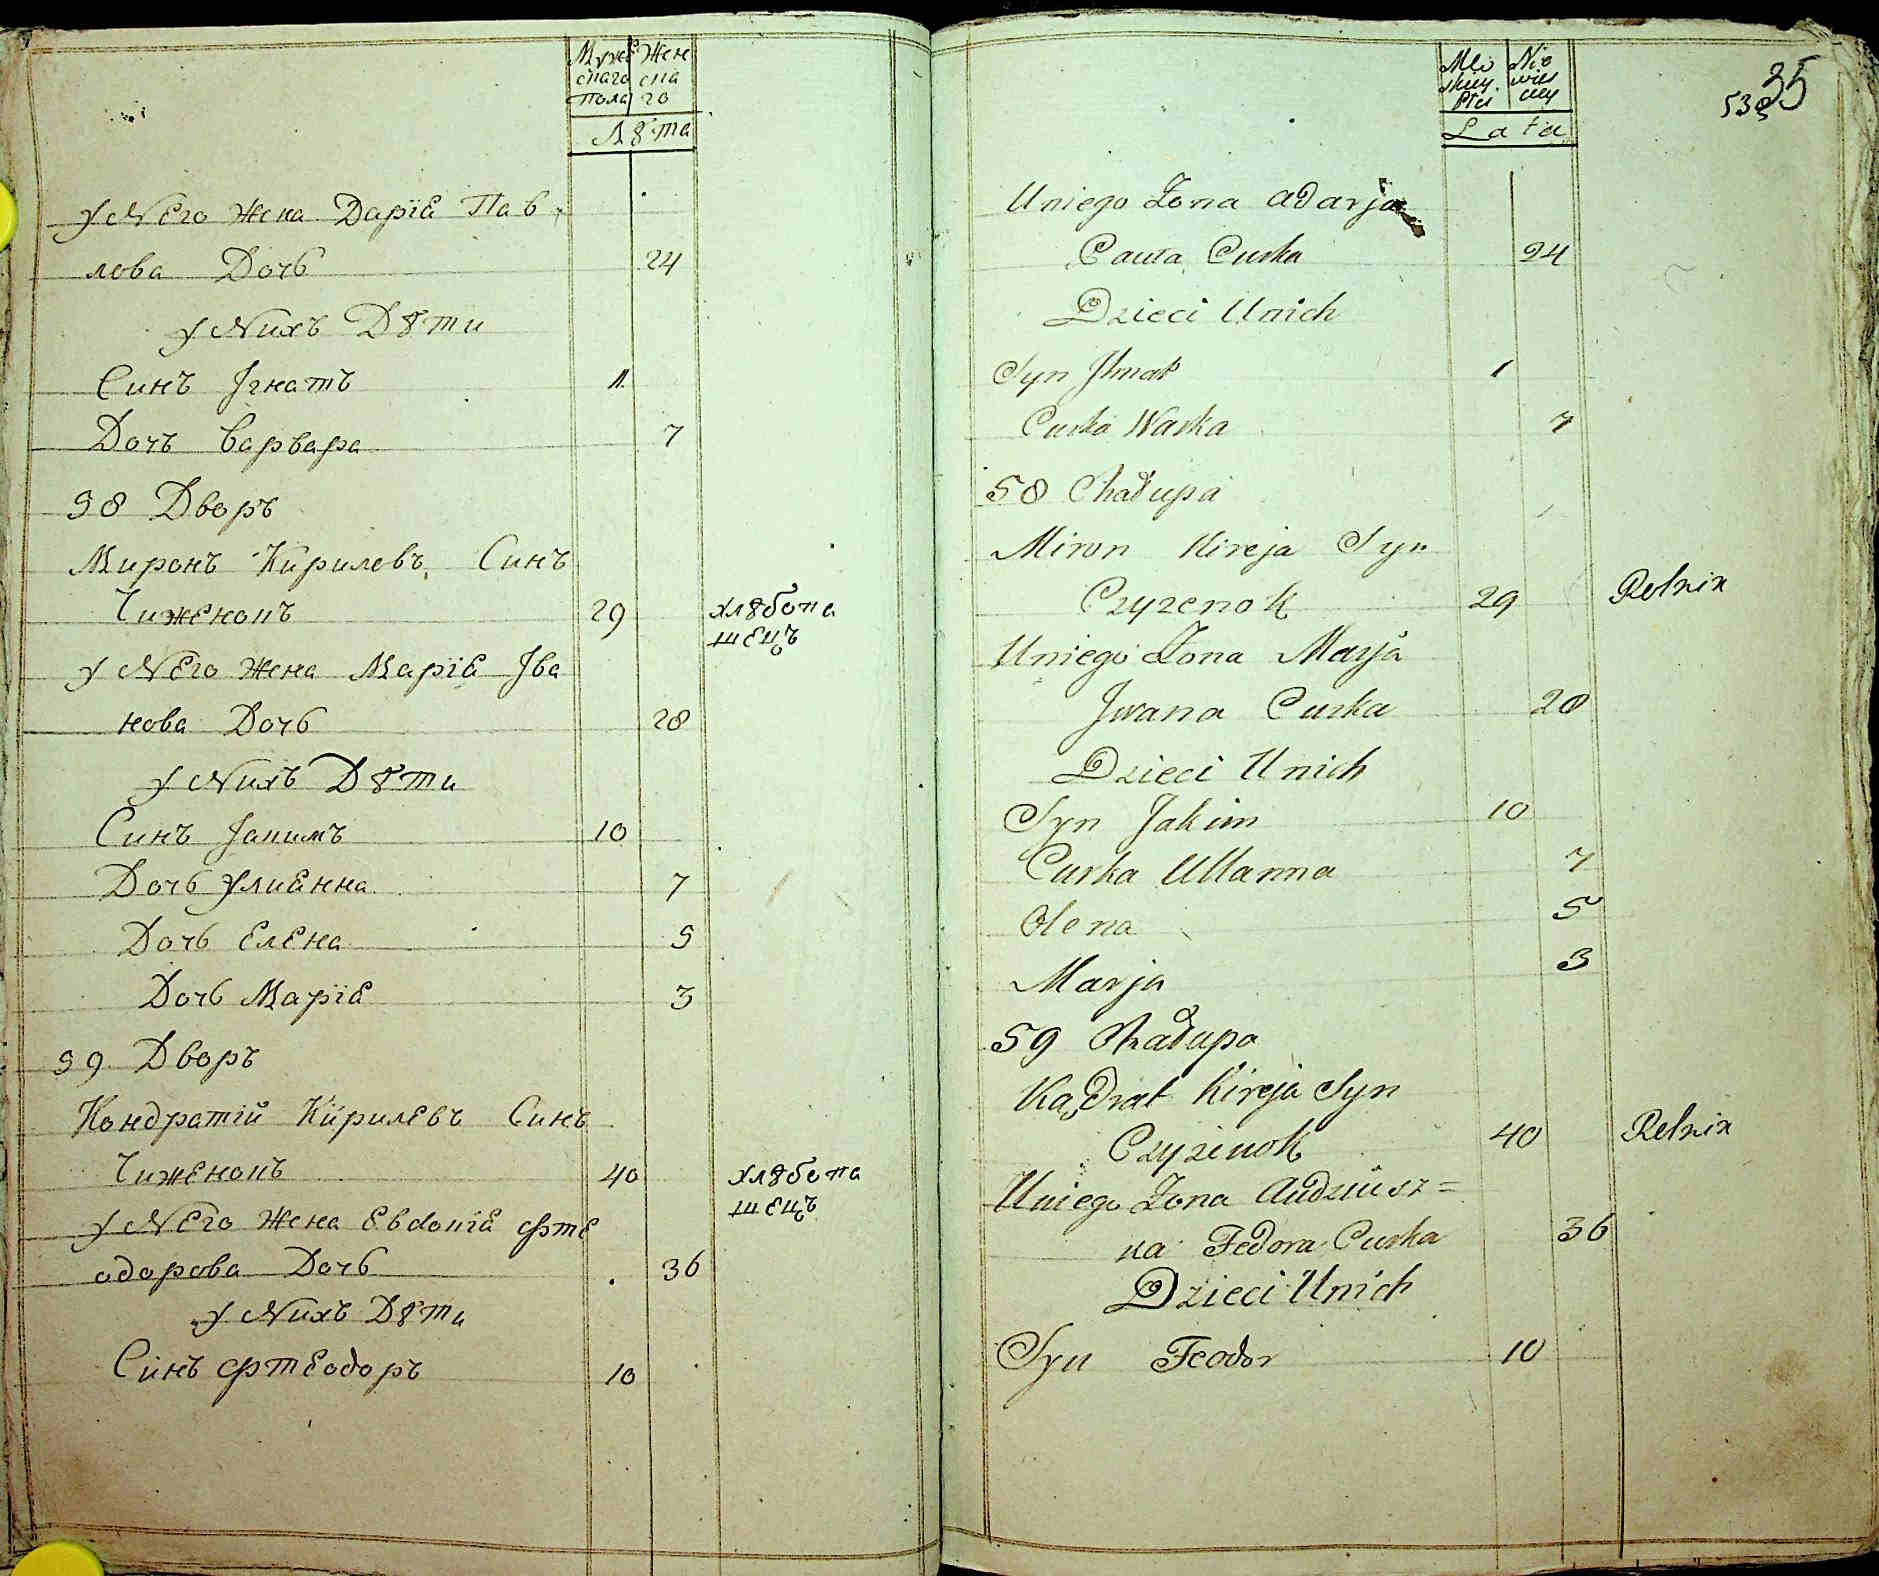 Мужескаго пола
Женскаго
Лѣта
у Него Жена Дарїа Пав
лова Дочь 24
у Нихъ Дѣти
Синъ Ігнатъ 11
Дочъ Варвара 7
58 Дворъ
Миронъ Кирилевъ Синъ
Чиженокъ 29 хлѣбопа
шецъ
у Него Жена Марїа Іва
нова Дочь 28
у Нихъ Дѣти
Синъ Іакимъ 10
Дочь Улианна 7
Дочь Елена 5
Дочь Марїа 3
59 Дворъ
Кондратїй Кирилевъ Синъ
Чиженокъ 40 хлѣбопа
шецъ
у Него Жена Евдокїа Фте
одорова Дочь 36
у Нихъ Дѣти
Синъ Фтеодоръ 10
Lata
35
Uniego Żona Adarja
Pauła Curka 24
Dzieci Unich
Syn Ihnat 1
Curka Warka 7
58 Chałupa
Miron Kireja Syn
Czyżenok 29 Rolnik
Uniego Żona Marja
Jwana Curka 28
Dzieci Unich
Syn Jakim 10
Curka Ullanna 7
Olena 5
Marja 3
59 Chałupa
Kądrat Kireja Syn
Czyżenok 40 Rolnik
Uniego Żona Audziusz=
ka Fedora Curka 36
Dzieci Unich
Syn Feodor 10